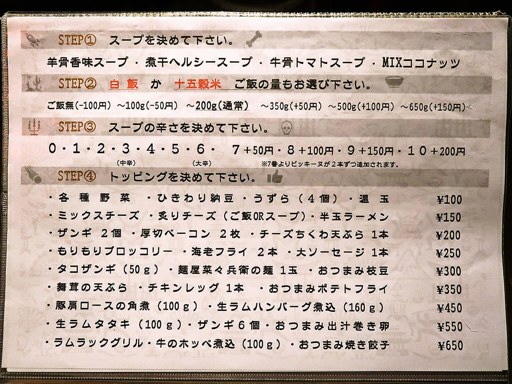 STEP① スープを決めて下さい。
羊骨香味スープ・煮干ヘルシースープ・牛骨トマトスープ・MIXココナッツ
STEP② 白飯 か 十五穀米 ご飯の量もお選び下さい。
ご飯無(-100円) ～100g(-50円) ～200g(通常) ～350g(+50円) ～500g(+100円) ～650g(+150円)
STEP③ スープの辛さを決めて下さい。
0・1・2・3・4・5・6・ 7+50円・8+100円・9+150円・10+200円
(中辛) (大辛) ※7番よりピッキーヌが2本ずつ追加されます。
STEP④ トッピングを決めて下さい。
・各種野菜・ひきわり納豆・うずら(4個)・温玉 ¥100
・ミックスチーズ・炙りチーズ(ご飯ORスープ)・半玉ラーメン ¥150
・ザンギ 2個・厚切ベーコン 2枚・チーズちくわ天ぷら 1本 ¥200
・もりもりブロッコリー・海老フライ 2本・大ソーセージ 1本 ¥250
・タコザンギ(50g)・麺屋菜々兵衛の麺 1玉・おつまみ枝豆 ¥300
・舞茸の天ぷら・チキンレッグ 1本・おつまみポテトフライ ¥350
・豚肩ロースの角煮(100g)・生ラムハンバーグ煮込(160g) ¥450
・生ラムタタキ(100g)・ザンギ6個・おつまみ出汁巻き卵 ¥550
・ラムラックグリル・牛のホッペ煮込(100g)・おつまみ焼き餃子 ¥650